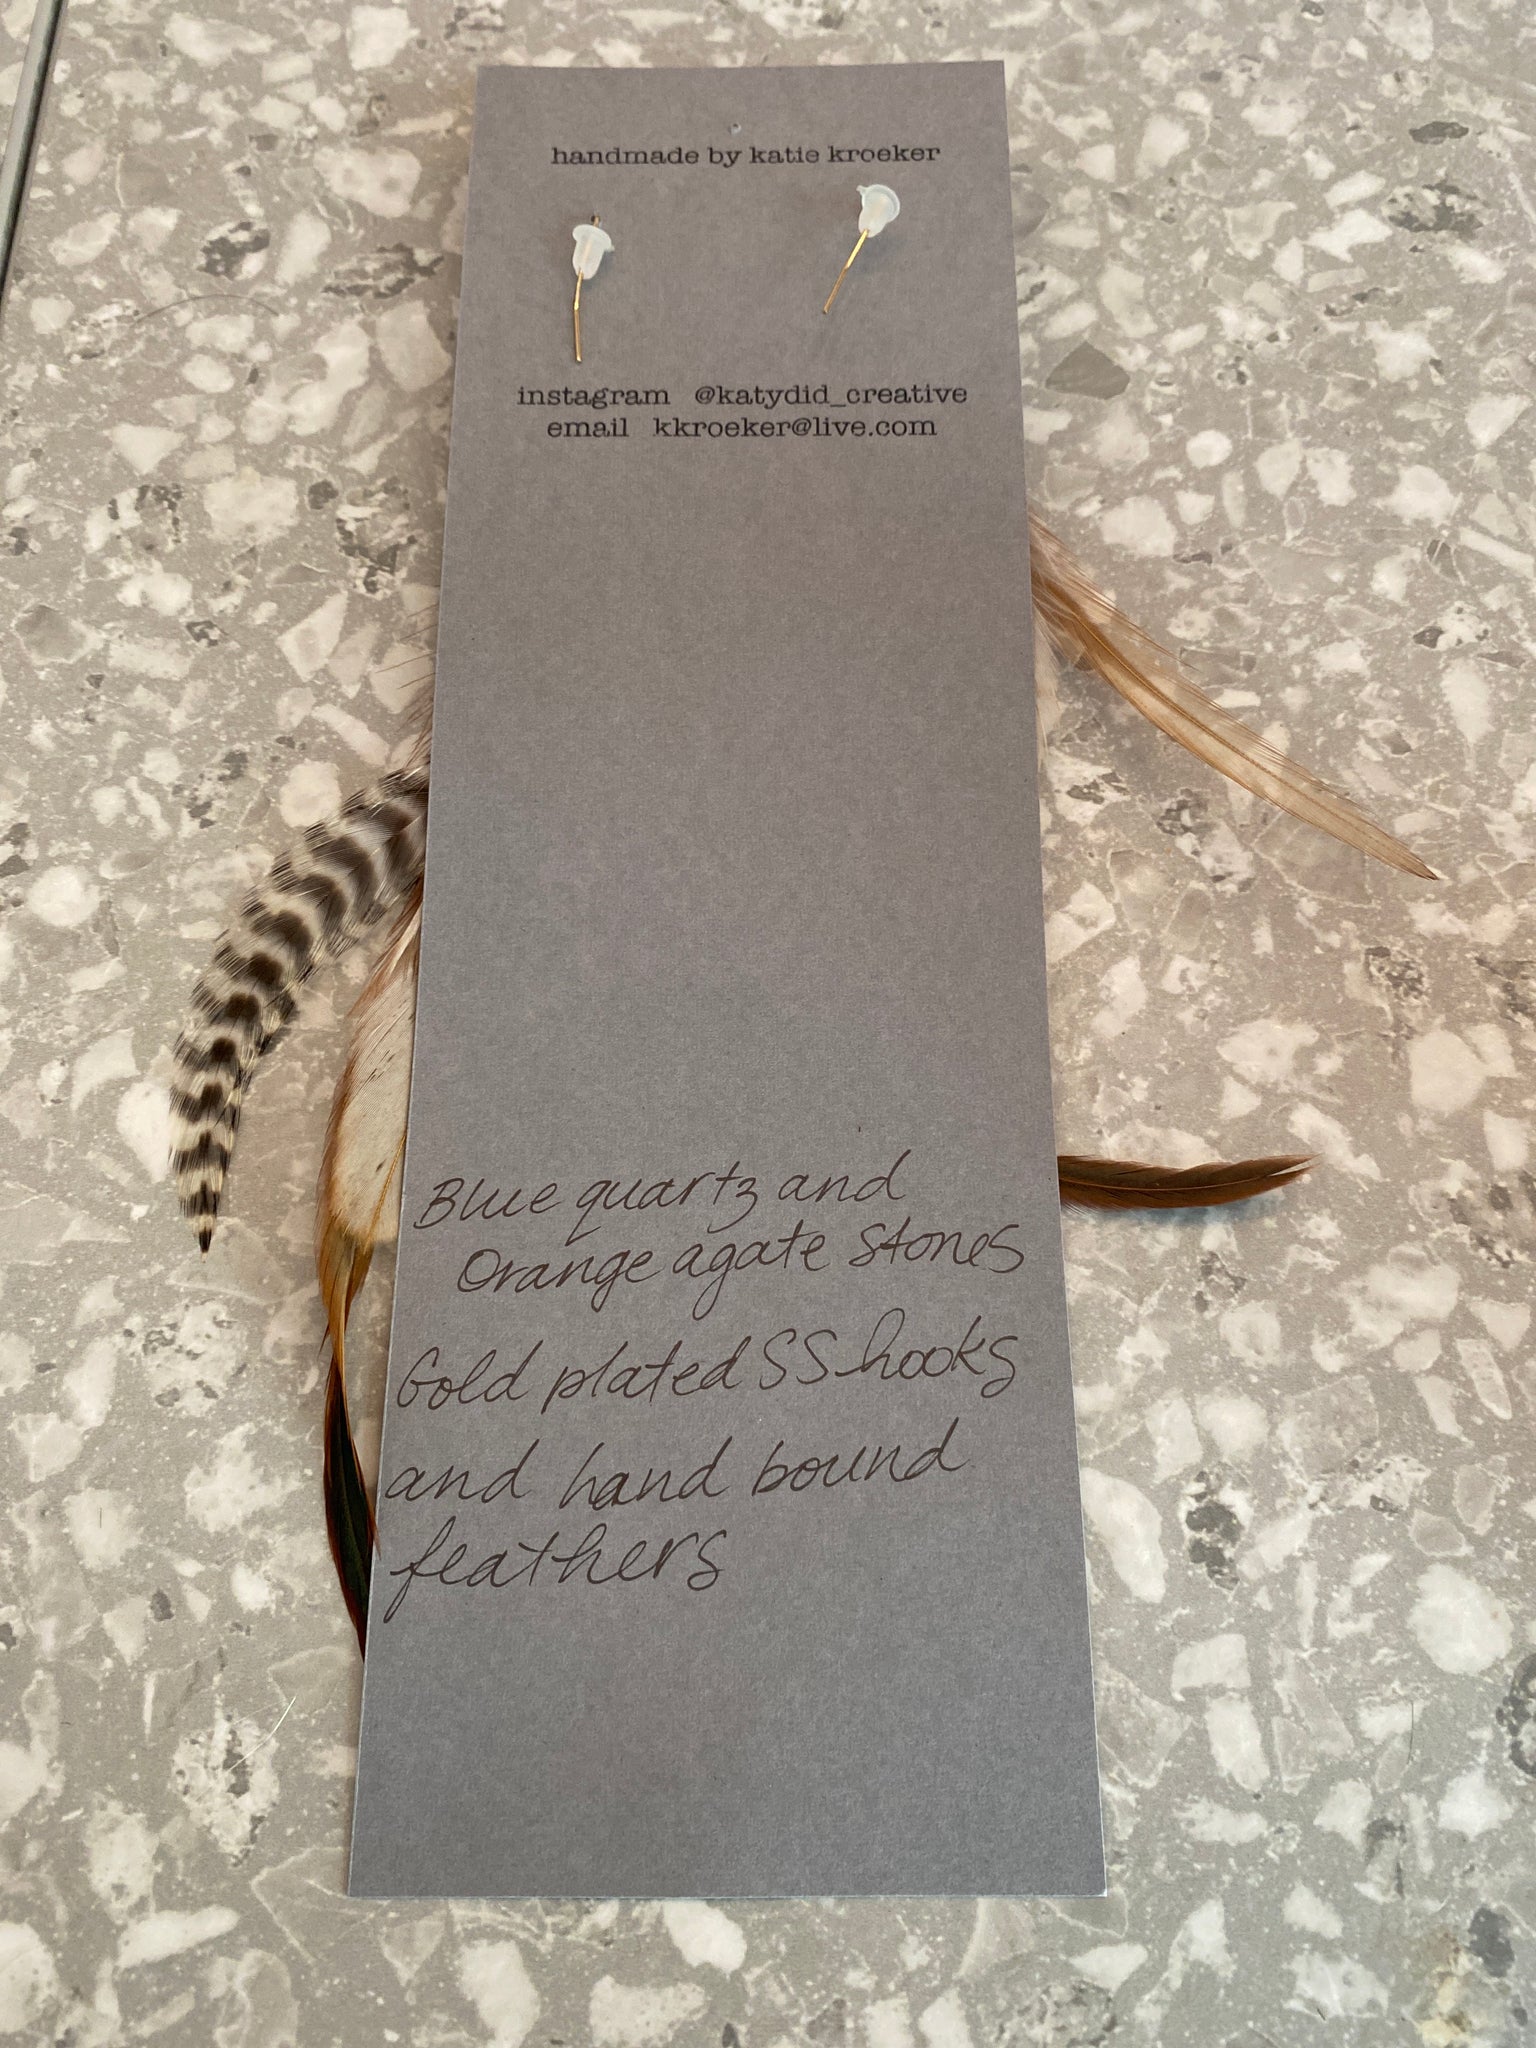 handmade by katie kroeker
instagram @katydid_creative
email kkroeker@live.com
Blue quartz and
Orange agate stones
Gold plated SS hooks
and hand bound
feathers